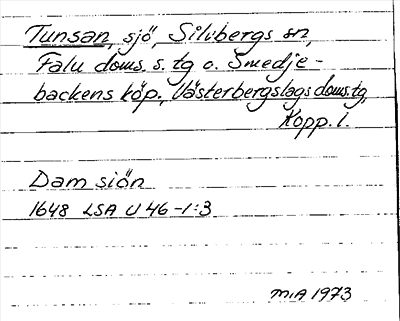 Tunsan, sjö, Silvbergs sn,
Falu doms. s. tg o. Smedje-
backens köp., Västerbergslags doms. tg,
Kopp. l.
Dam siön
1648 LSA U 46-1:3
MIA 1973